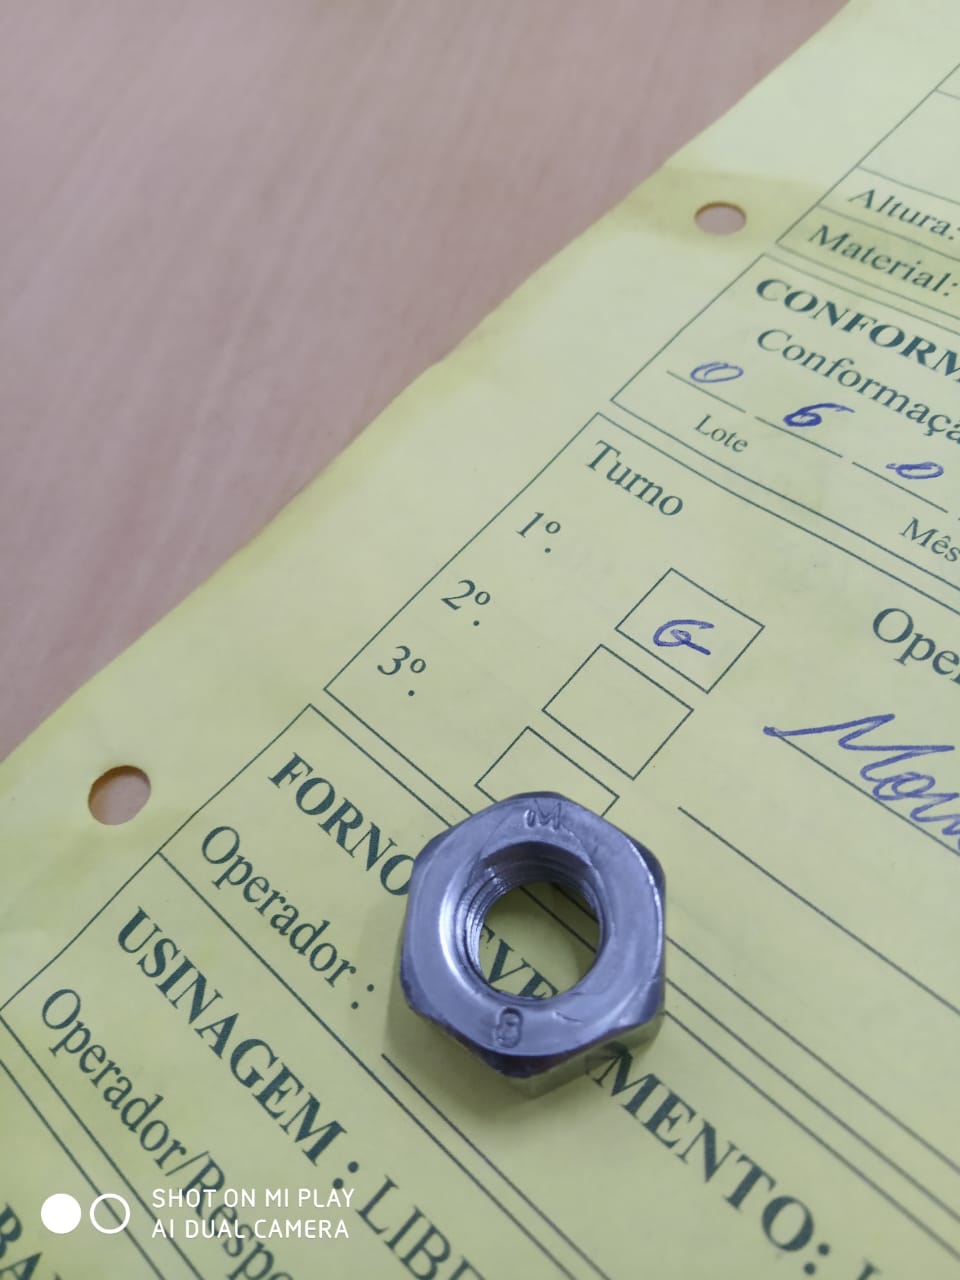 Altura:
Material:
CONFORM
Conformaça
0 6 0
Lote
Mês
Turno
1º.
2º.
3º.
G
Ope
FORNO
EVE
MENTO:
Operador :
USINAGEM : LIBE
Operador/Respo
BA
M
8
SHOT ON MI PLAY
AI DUAL CAMERA